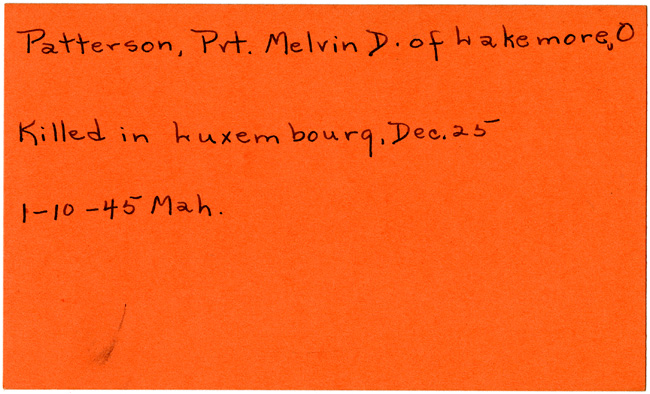 Patterson, Pvt. Melvin D. of Lakemore, O
Killed in Luxembourg, Dec. 25
1-10-45 Mah.